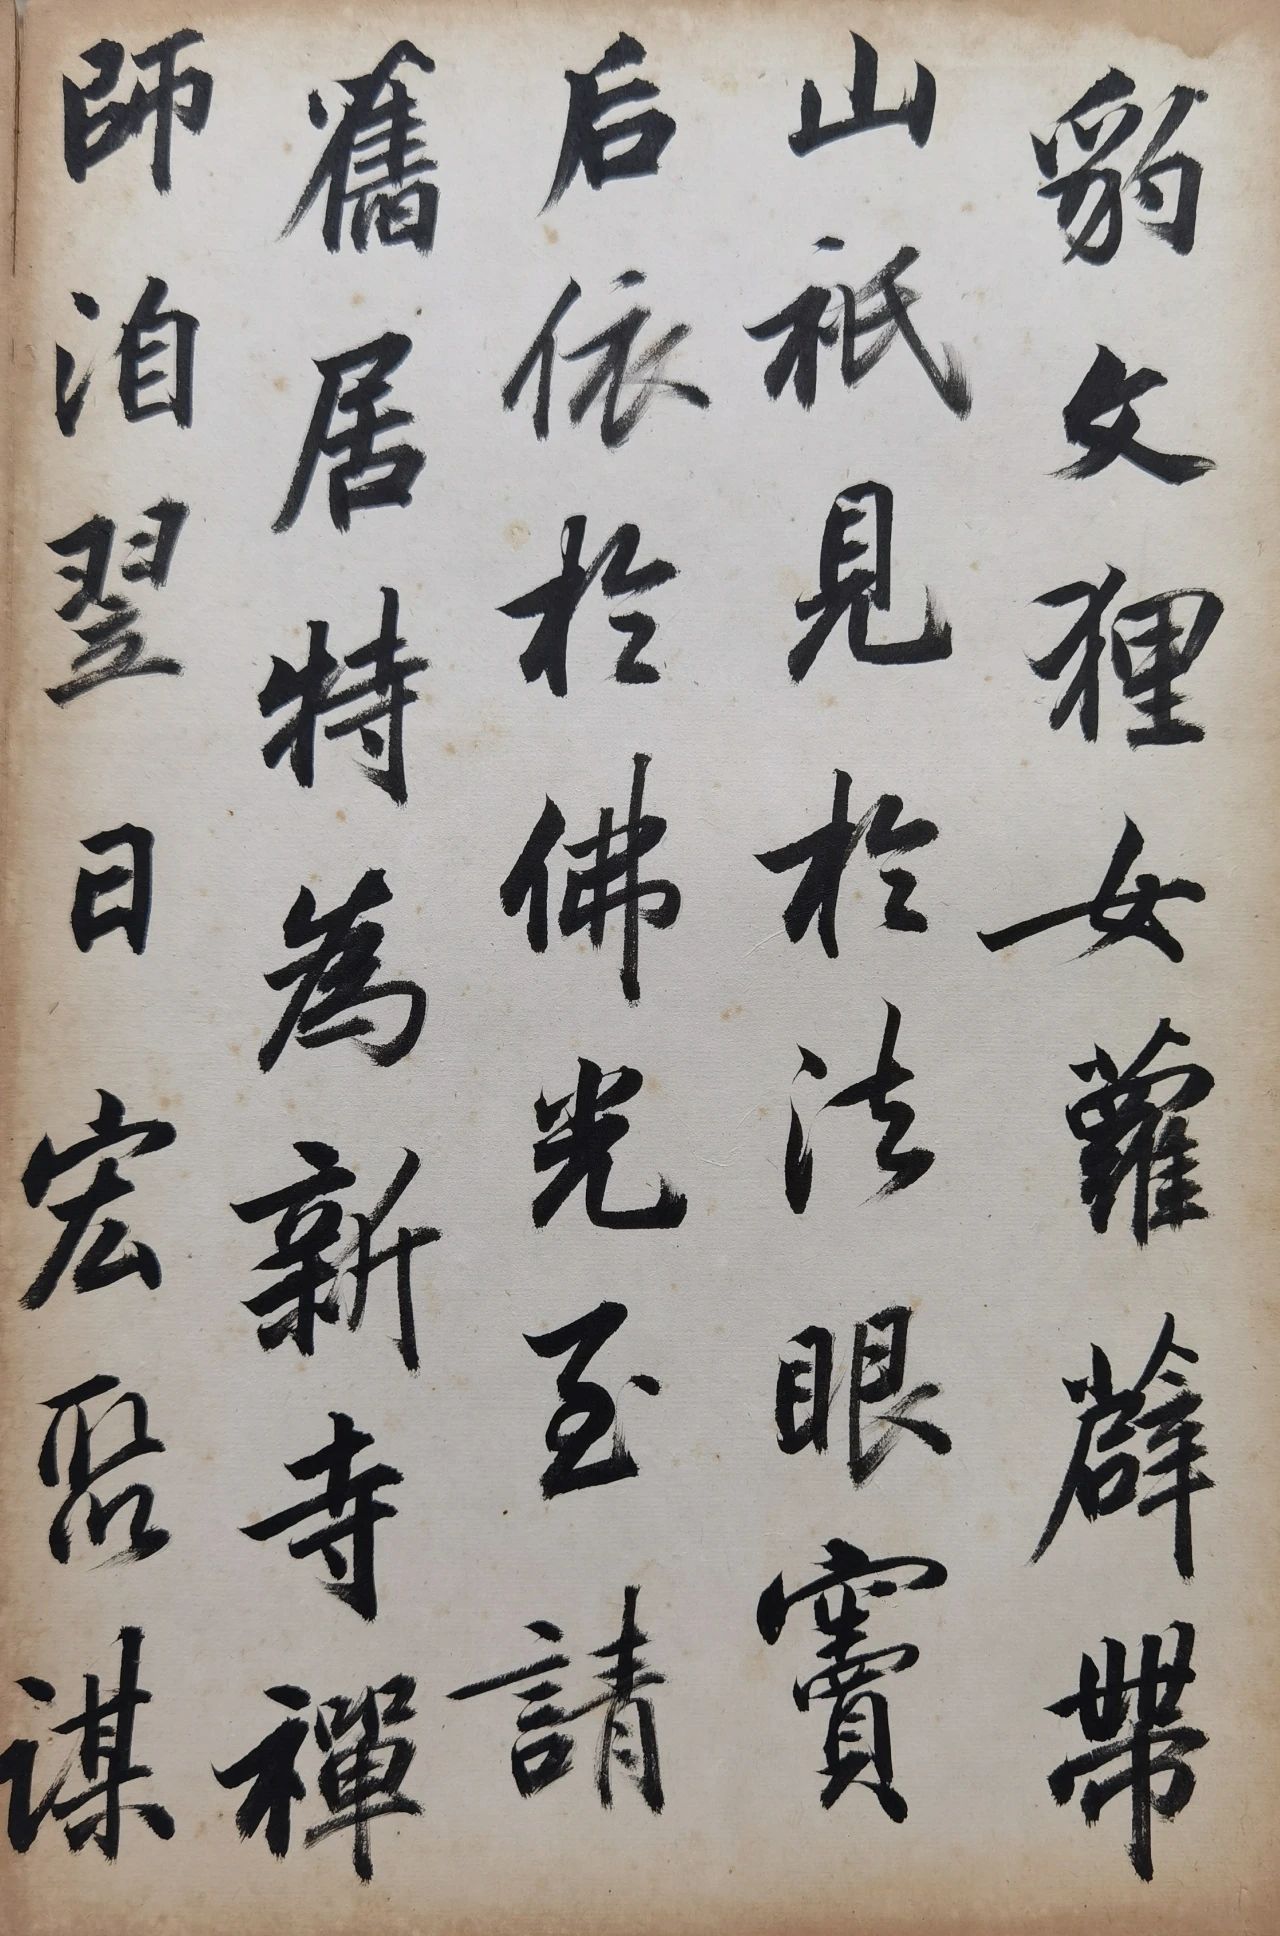 豹文狸女蘿薜帶
山祇見於法眼竇
后依於佛光至請
舊居特為新寺禪
師洎翌日宏聚謀